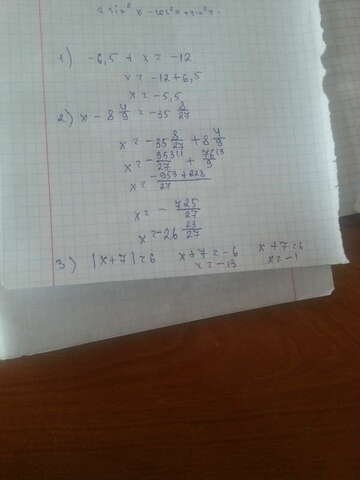 1) -6,5 + x = -12
x = -12 + 6,5
x = -5,5
2) x - 8 4/9 = -35 8/27
x = -35 8/27 + 8 4/9
x = - 953/27 + 76/9
x = -953 + 228/27
x = - 725/27
x = -26 23/27
3) |x+7| = 6 x+7 = -6 x+7=6
x = -13 x=-1